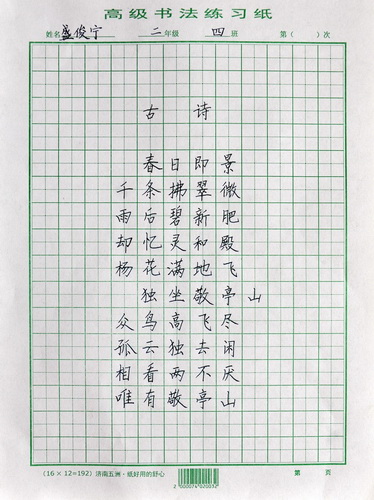 高级书法练习纸
姓名 盛俊宁 二年级 四班 第( )次
古诗
春日即景
千条拂翠微
雨后碧新肥
却忆灵和殿
杨花满地飞
独坐敬亭山
众鸟高飞尽
孤云独去闲
相看两不厌
唯有敬亭山
(16×12=192)济南五洲·纸好用的舒心 第 页